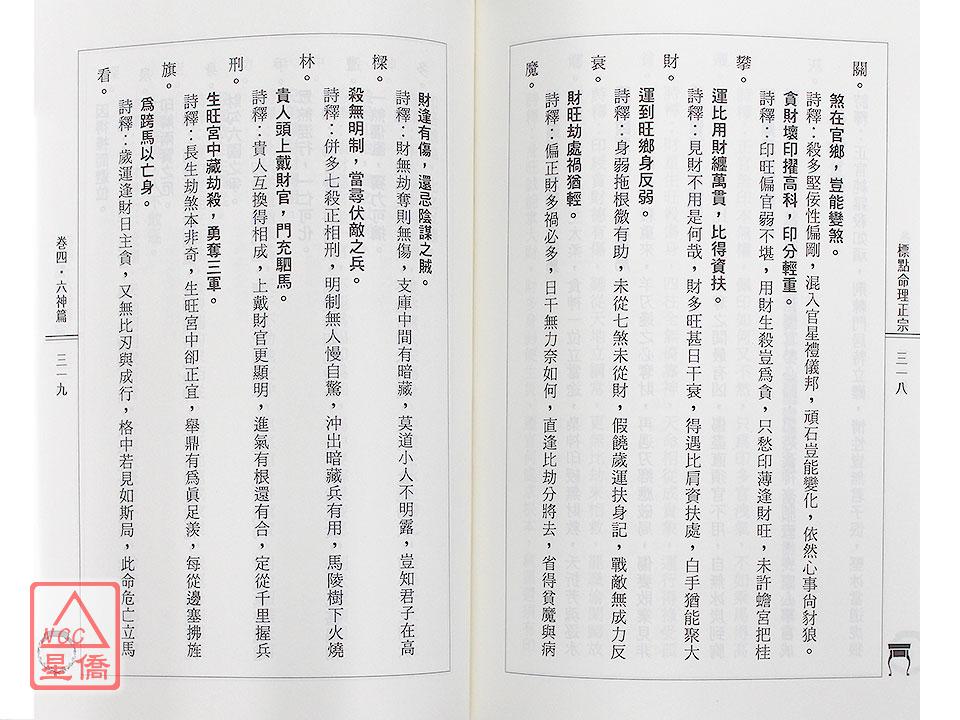 關。
煞在官鄉，豈能變煞。
詩釋：殺多堅佞性偏剛，混入官星禮儀邦，頑石豈能變化，依然心事尚豺狼。
貪財壞印擢高科，印分輕重。
詩釋：印旺偏官弱不堪，用財生殺豈爲貪，只愁印薄逢財旺，未許蟾宮把桂
攀。
運比用財纏萬貫，比得資扶。
詩釋：見財不用是何哉，財多旺甚日干衰，得遇比肩資扶處，白手猶能聚大
財。
運到旺鄉身反弱。
詩釋：身弱拖根微有助，未從七煞未從財，假饒歲運扶身記，戰敵無成力反
衰。
財旺劫處禍猶輕。
詩釋：偏正財多禍必多，日干無力奈如何，直逢比劫分將去，省得貧魔與病
魔。
標點命理正宗
三一八
財逢有傷，還忌陰謀之賊。
詩釋：財無劫奪則無傷，支庫中間有暗藏，莫道小人不明露，豈知君子在高
樑。
殺無明制，當尋伏敵之兵。
詩釋：併多七殺正相刑，明制無人慢自驚，沖出暗藏兵有用，馬陵樹下火燒
林。
貴人頭上戴財官，門充駟馬。
詩釋：貴人互換得相成，上戴財官更顯明，進氣有根還有合，定從千里握兵
刑。
生旺宮中藏劫殺，勇奪三軍。
詩釋：長生劫煞本非奇，生旺宮中卻正宜，舉鼎有爲眞足羨，每從邊塞拂旌
旗。
爲跨馬以亡身。
詩釋：歲運逢財日主貪，又無比刃與成行，格中若見如斯局，此命危亡立馬
看。
卷四・六神篇
三一九
NCC
星僑